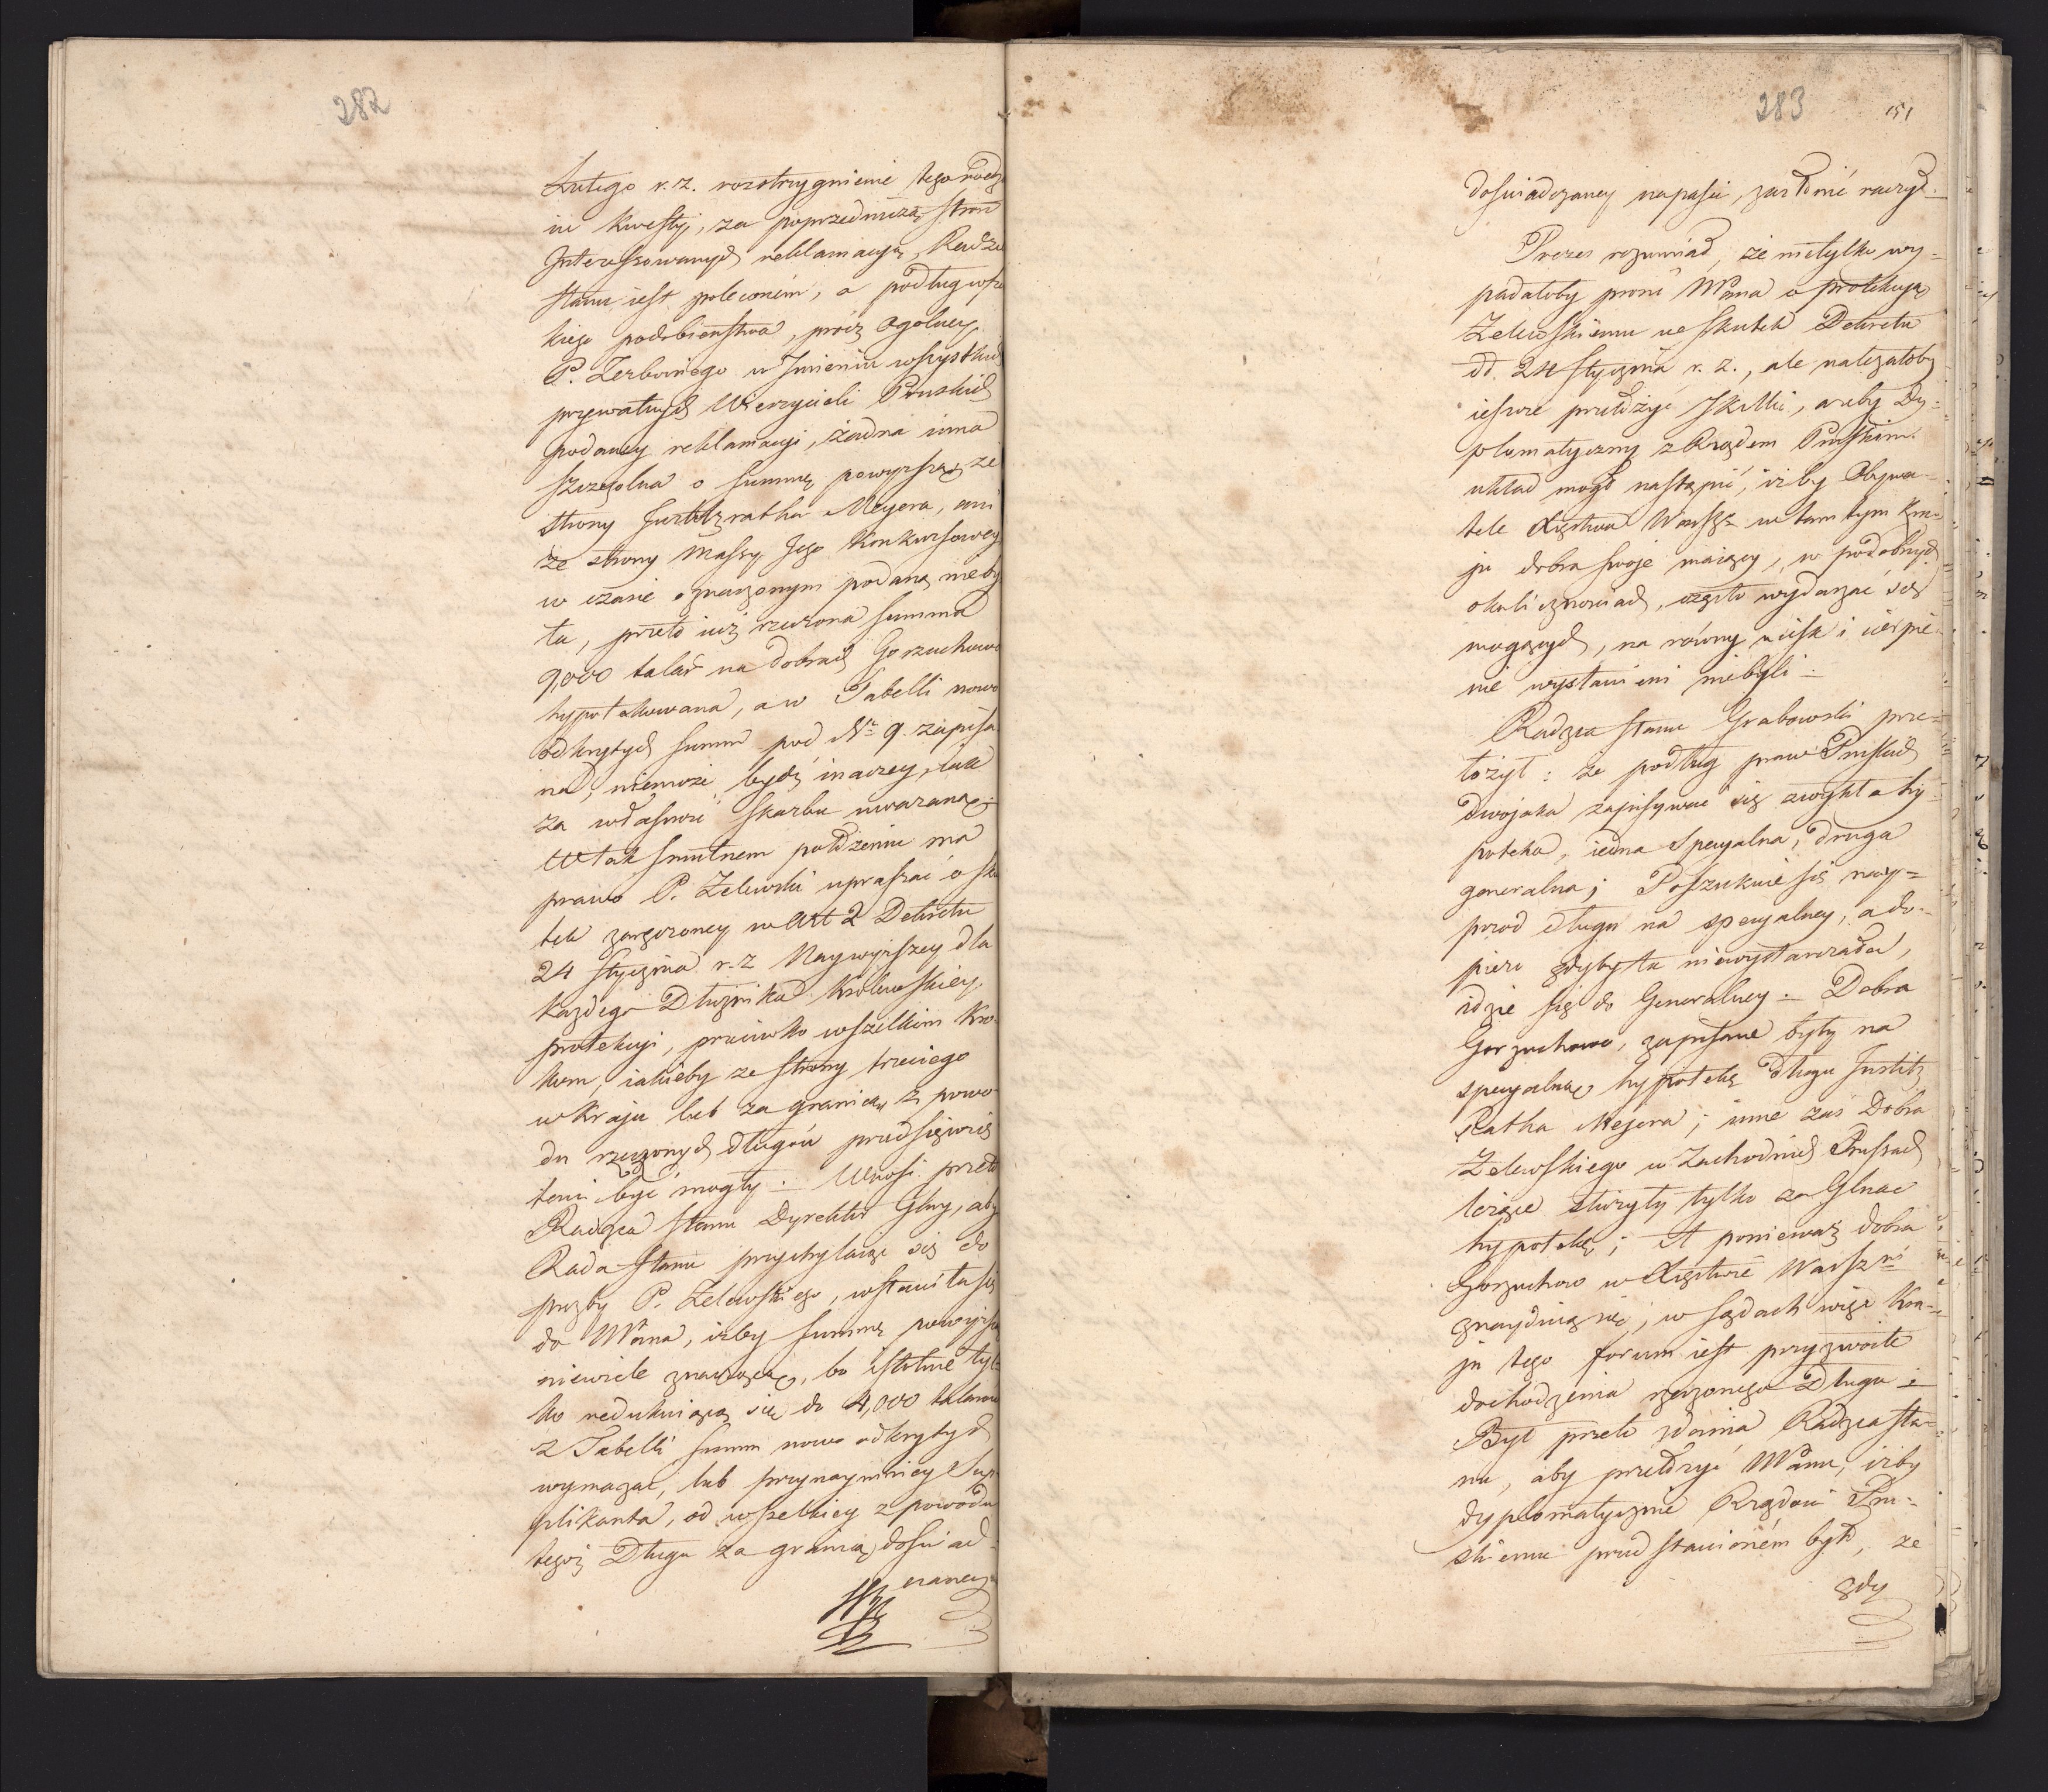 282
Lutego r. z. rozstrzygnienie tego rodza
iu kwestyi, za poprzedniczą stron
Interessowanych reklamacyą, Radzie
stanu iest poleconem, a podług wsze
kiego podobieństwa, prócz ogolney,
P. Zerboniego w Imieniu wszystkich
prywatnych Wierzycieli Pruskich
podaney reklamacyi, żadna inna
szczegolna o summę powyższą ze
strony Justitzratha Meyera, ani
ze strony Massy Jego Konkursowey
w czasie oznaczonym podaną nie by
ła, przeto iuż rzeczona summa
9,000 talar na dobrach Gorzuchowo
hypotekowana, a w Tabelli nowo
odkrytych summ pod Nr 9. zapisa
na, niemoże bydź inaczey, iak
za własność skarbu uważaną.
W tak smutnem położeniu ma
prawo P. Zelewski upraszać o sku
tek zaręczoney w Art 2 Dekretu
24 Stycznia r. z Naywyższey dla
każdego Dłużnika Krolewskiey
protekcyi, przeciwko wszelkim kro-
kom, iakieby ze strony trzeciego
w kraju lub za granicą z powo-
du rzeczonych długów przedsięwzię
temi być mogły. Wnosi przeto
Radzca stanu Dyrektor Glny, aby
Rada stanu przychylaiąc się do
prozby P. Zelewskiego, wstawiła się
do NPana, iżby summę powyższą
niewiele znaczącą, bo istotnie tyl-
ko redukuiącą się do 4,000 talarów
z Tabelli summ nowo odkrytych
wymazać, lub przynaymniey Sup-
plikanta, od wszelkiey z powodu
tegoż Długu za granicą doświad-
czaney
283
151
doświadczaney napaści, zasłonić raczył.
Prezes rozumiał, że nietylko wy-
padałoby prosić NPana o protekcyą
Zelewskiemu na skutek Dekretu
dd. 24 Stycznia r. z., ale należałoby
ieszcze przełożyć Jk Mci, ażeby Dy-
plomatyczny z Rządem Pruskim
układ mogł nastąpić, iżby Obywa-
tele Xięstwa Warszo w tamtym kra-
ju dobra swoje maiący, w podobnych
okolicznościach, często wydarzać się
mogących, na równy ucisk i cierpie-
nie wystawieni niebyli.
Radzca stanu Grabowski prze-
łożył: że podług praw Pruskich
dwojaka zapisywać się zwykła hy-
poteka, iedna specyalna, druga
generalna; Poszukuie się nay-
przod długu na specyalney, a do-
piero gdyby ta niewystarczała,
idzie się do Generalney. Dobra
Gorzuchowo, zapisane były na
specyalną hypotekę długu Justitz
Ratha Mejera; inne zaś Dobra
Zelewskiego w Zachodnich Prusach
leżące służyły tylko za Glnae
hypotekę; A ponieważ dobra
Gorzuchowo w Xięstwie Warszm
znayduią się, w sądach więc kra-
ju tego forum iest przyzwoite
dochodzenia rzeczonego Długu.
Był przeto zdania Radzca sta-
nu, aby przełożyć NPanu, iżby
dyplomatycznie Rządowi Pru-
skiemu przedstawioném było, że
gdy